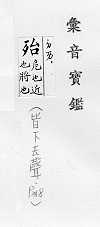 彙音寶鑑
殆
危也近
也將也
(皆下去聲. P.48)